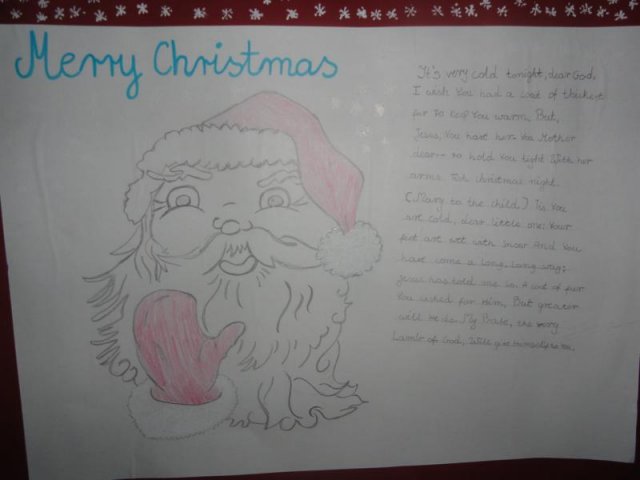 Merry Christmas
It's very cold tonight, dear God,
I wish You had a coat of thickest
fur to keep You warm. But,
Jesus, You have her- You Mother
dear-- to hold You tight With her
arms Christmas night.
(Mary to the child.) You
are cold, dear little one: Your
feet are wet with snow And You
have come a long, long way;
Jesus has told me so. A coat of furr
You asked for Him, But greater
will He do. My Praise, the very
Lamb of God, Will give himself to